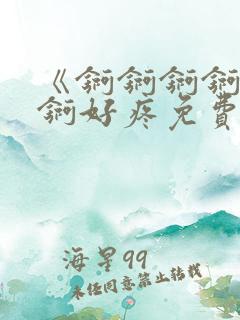 《锕锕锕锕
锕好疼免費
海星99
未任同意禁止转载